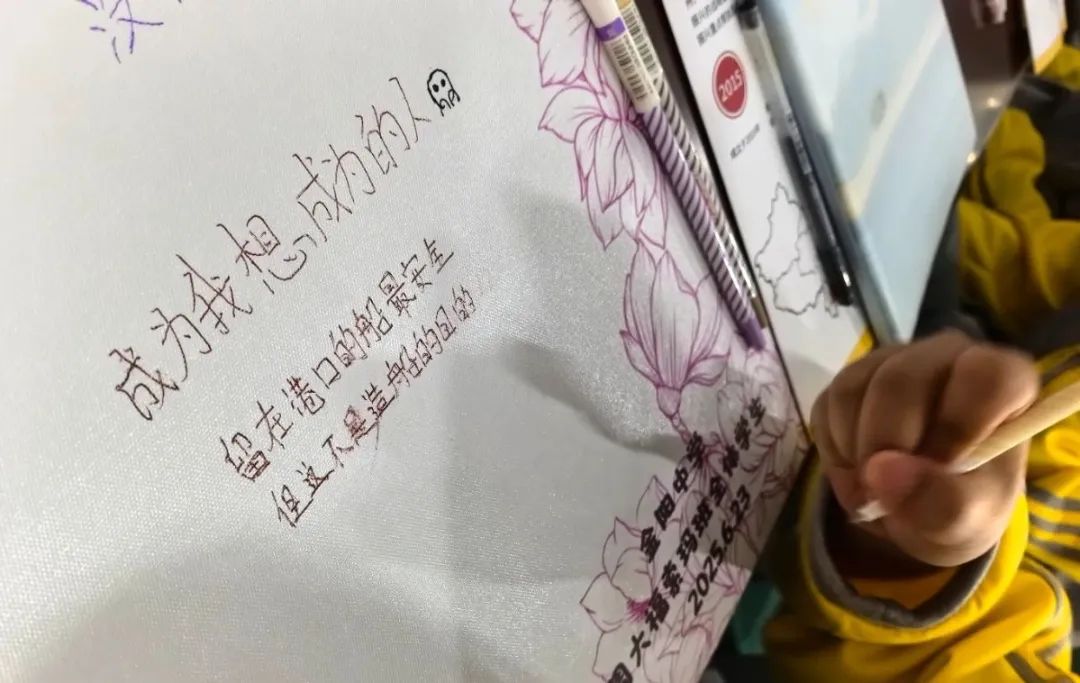 成为我想成为的人
留在港口的船最安全
但这不是造船的目的
金阳中学
周大福索玛班全体学生
2025.6.23
2015